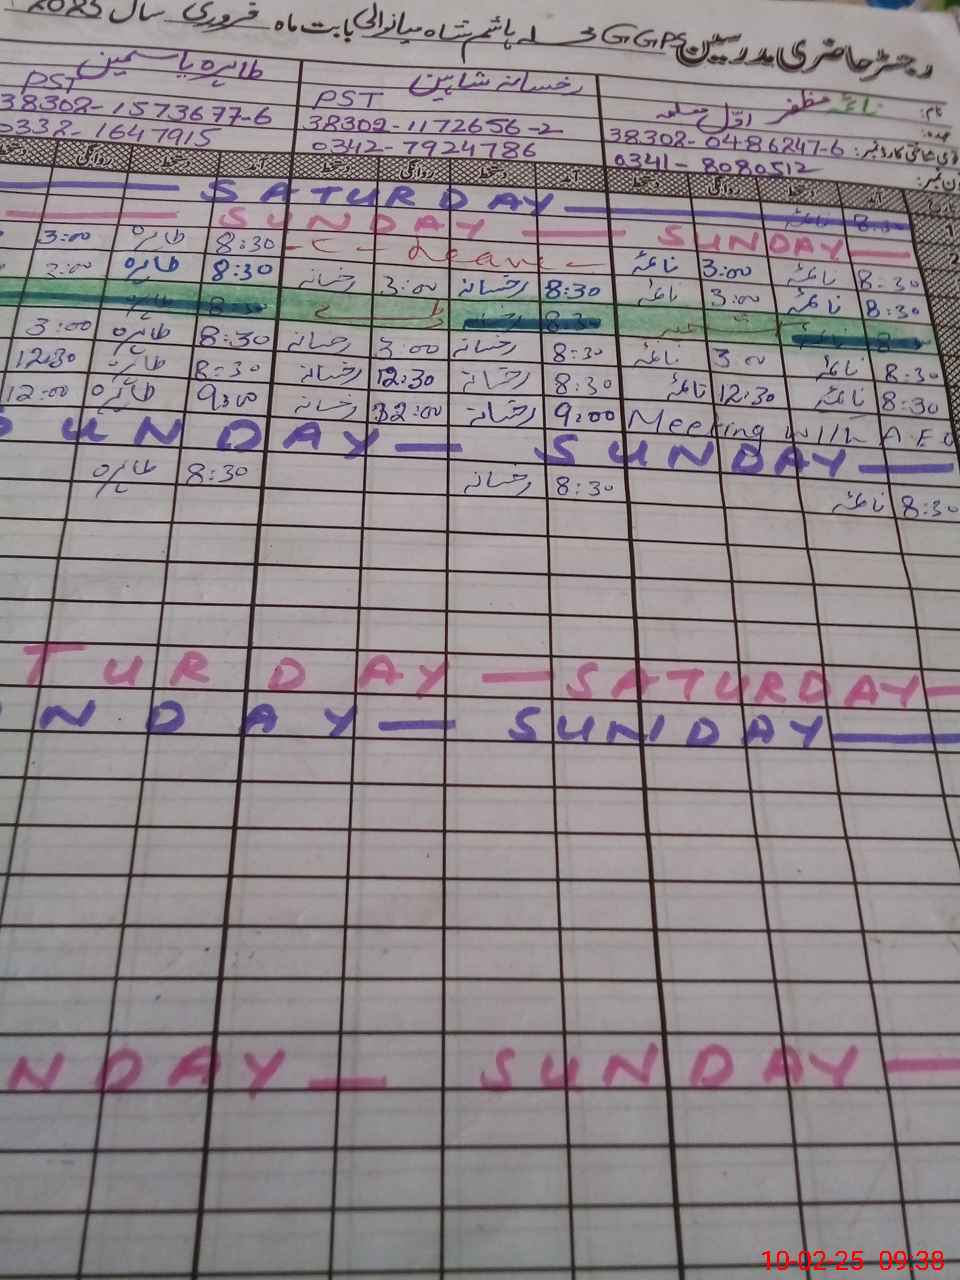 رجسٹر حاضری مدرسین GGPS محلہ ہاشم شاہ میانوالی بابت ماہ فروری سال 2025
نام: نائمہ مظفر رخسانہ شاہین طاہرہ یاسمین
عہدہ: اوّل معلمہ PST PST
38302-0486247-6 38302-1172656-2 38302-1573677-6
0341-8080512 0342-7924786 0332-1647915
آمد دستخط روانگی دستخط آمد دستخط روانگی دستخط آمد دستخط روانگی
SATURDAY
SUNDAY — SUNDAY
8:30 نائمہ 3:00 نائمہ Leave 8:30 طاہرہ 3:00
8:30 نائمہ 3:00 نائمہ 8:30 رخسانہ 3:00 رخسانہ 8:30 طاہرہ 3:00
8:30 رخسانہ 8:30 طاہرہ
8:30 نائمہ 3:00 نائمہ 8:30 رخسانہ 3:00 رخسانہ 8:30 طاہرہ 3:00
8:30 نائمہ 12:30 نائمہ 8:30 رخسانہ 12:30 رخسانہ 8:30 طاہرہ 12:30
Meeting with A.E.O 9:00 رخسانہ 12:00 رخسانہ 9:00 طاہرہ 12:00
SUNDAY — SUNDAY —
8:30 نائمہ 8:30 رخسانہ 8:30 طاہرہ
TURDAY — SATURDAY —
NDAY — SUNDAY —
NDAY — SUNDAY —
10-02-25 09:38